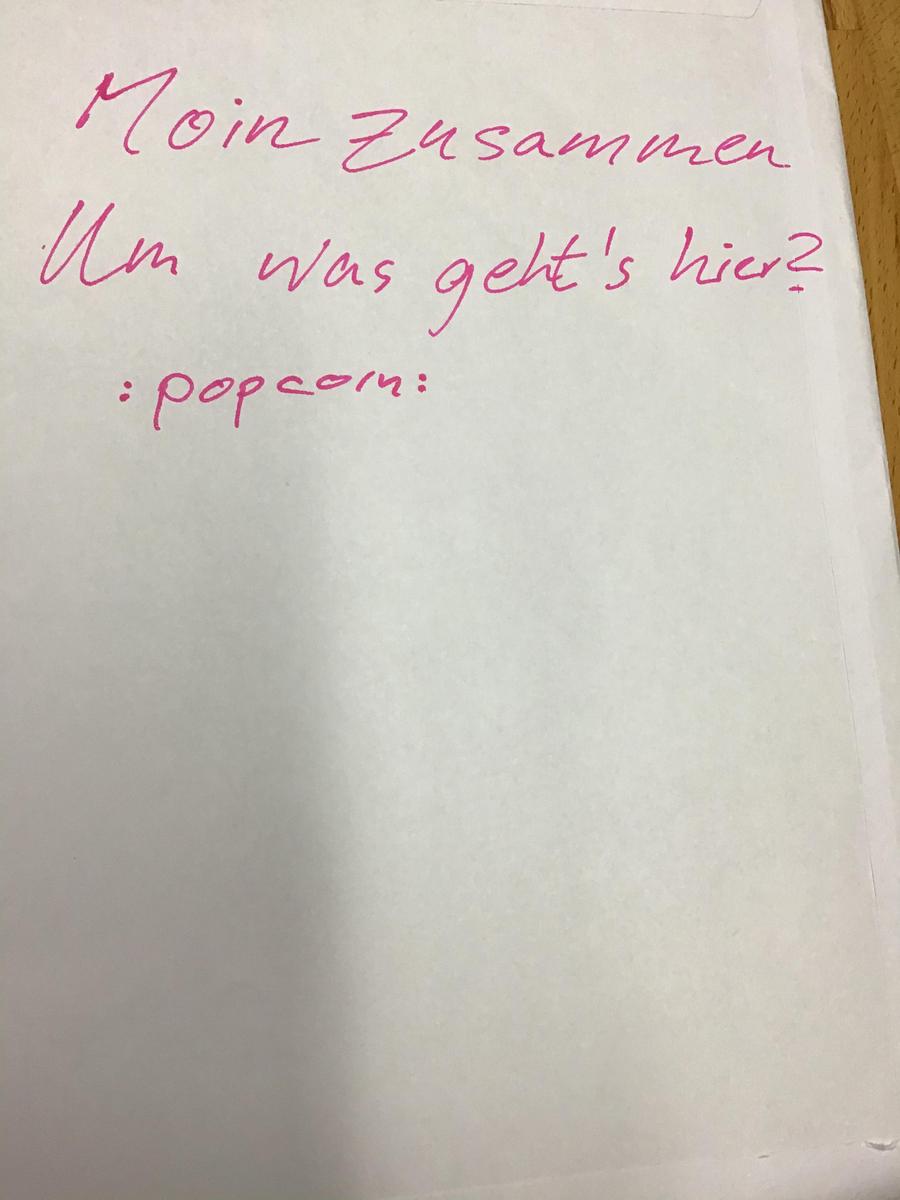 Moin zusammen
Um was geht's hier?
:popcorn: